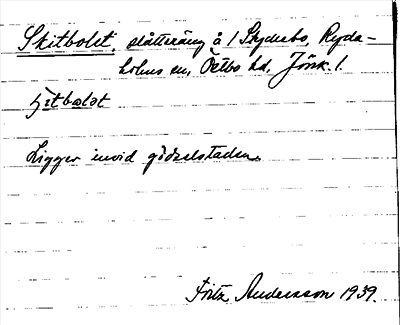 Skitbolet, slåtteräng å / Skyttebo, Ryda-
holms sn, Östbo hd, Jönk. /
ʃitbolət
Ligger invid gödselstaden.
Fritz Andersson 1939.